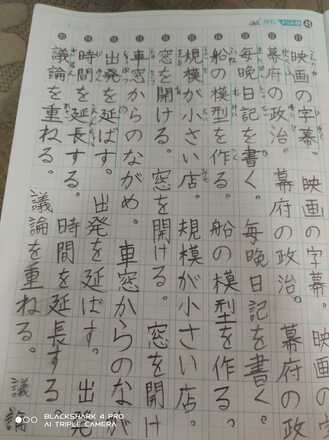 映画の字幕。映画の字幕。映画の
幕府の政治。幕府の政治。幕府の政
毎晩日記を書く。毎晩日記を書く。
船の模型を作る。船の模型を作る。
規模が小さい店。規模が小さい店。
窓を開ける。窓を開ける。窓を開け
車窓からのながめ。車窓からのなが
出発を延ばす。出発を延ばす。出発
時間を延長する。時間を延長する
議論を重ねる。議論を重ねる。議論
BLACKSHARK 4 PRO
AI TRIPLE CAMERA